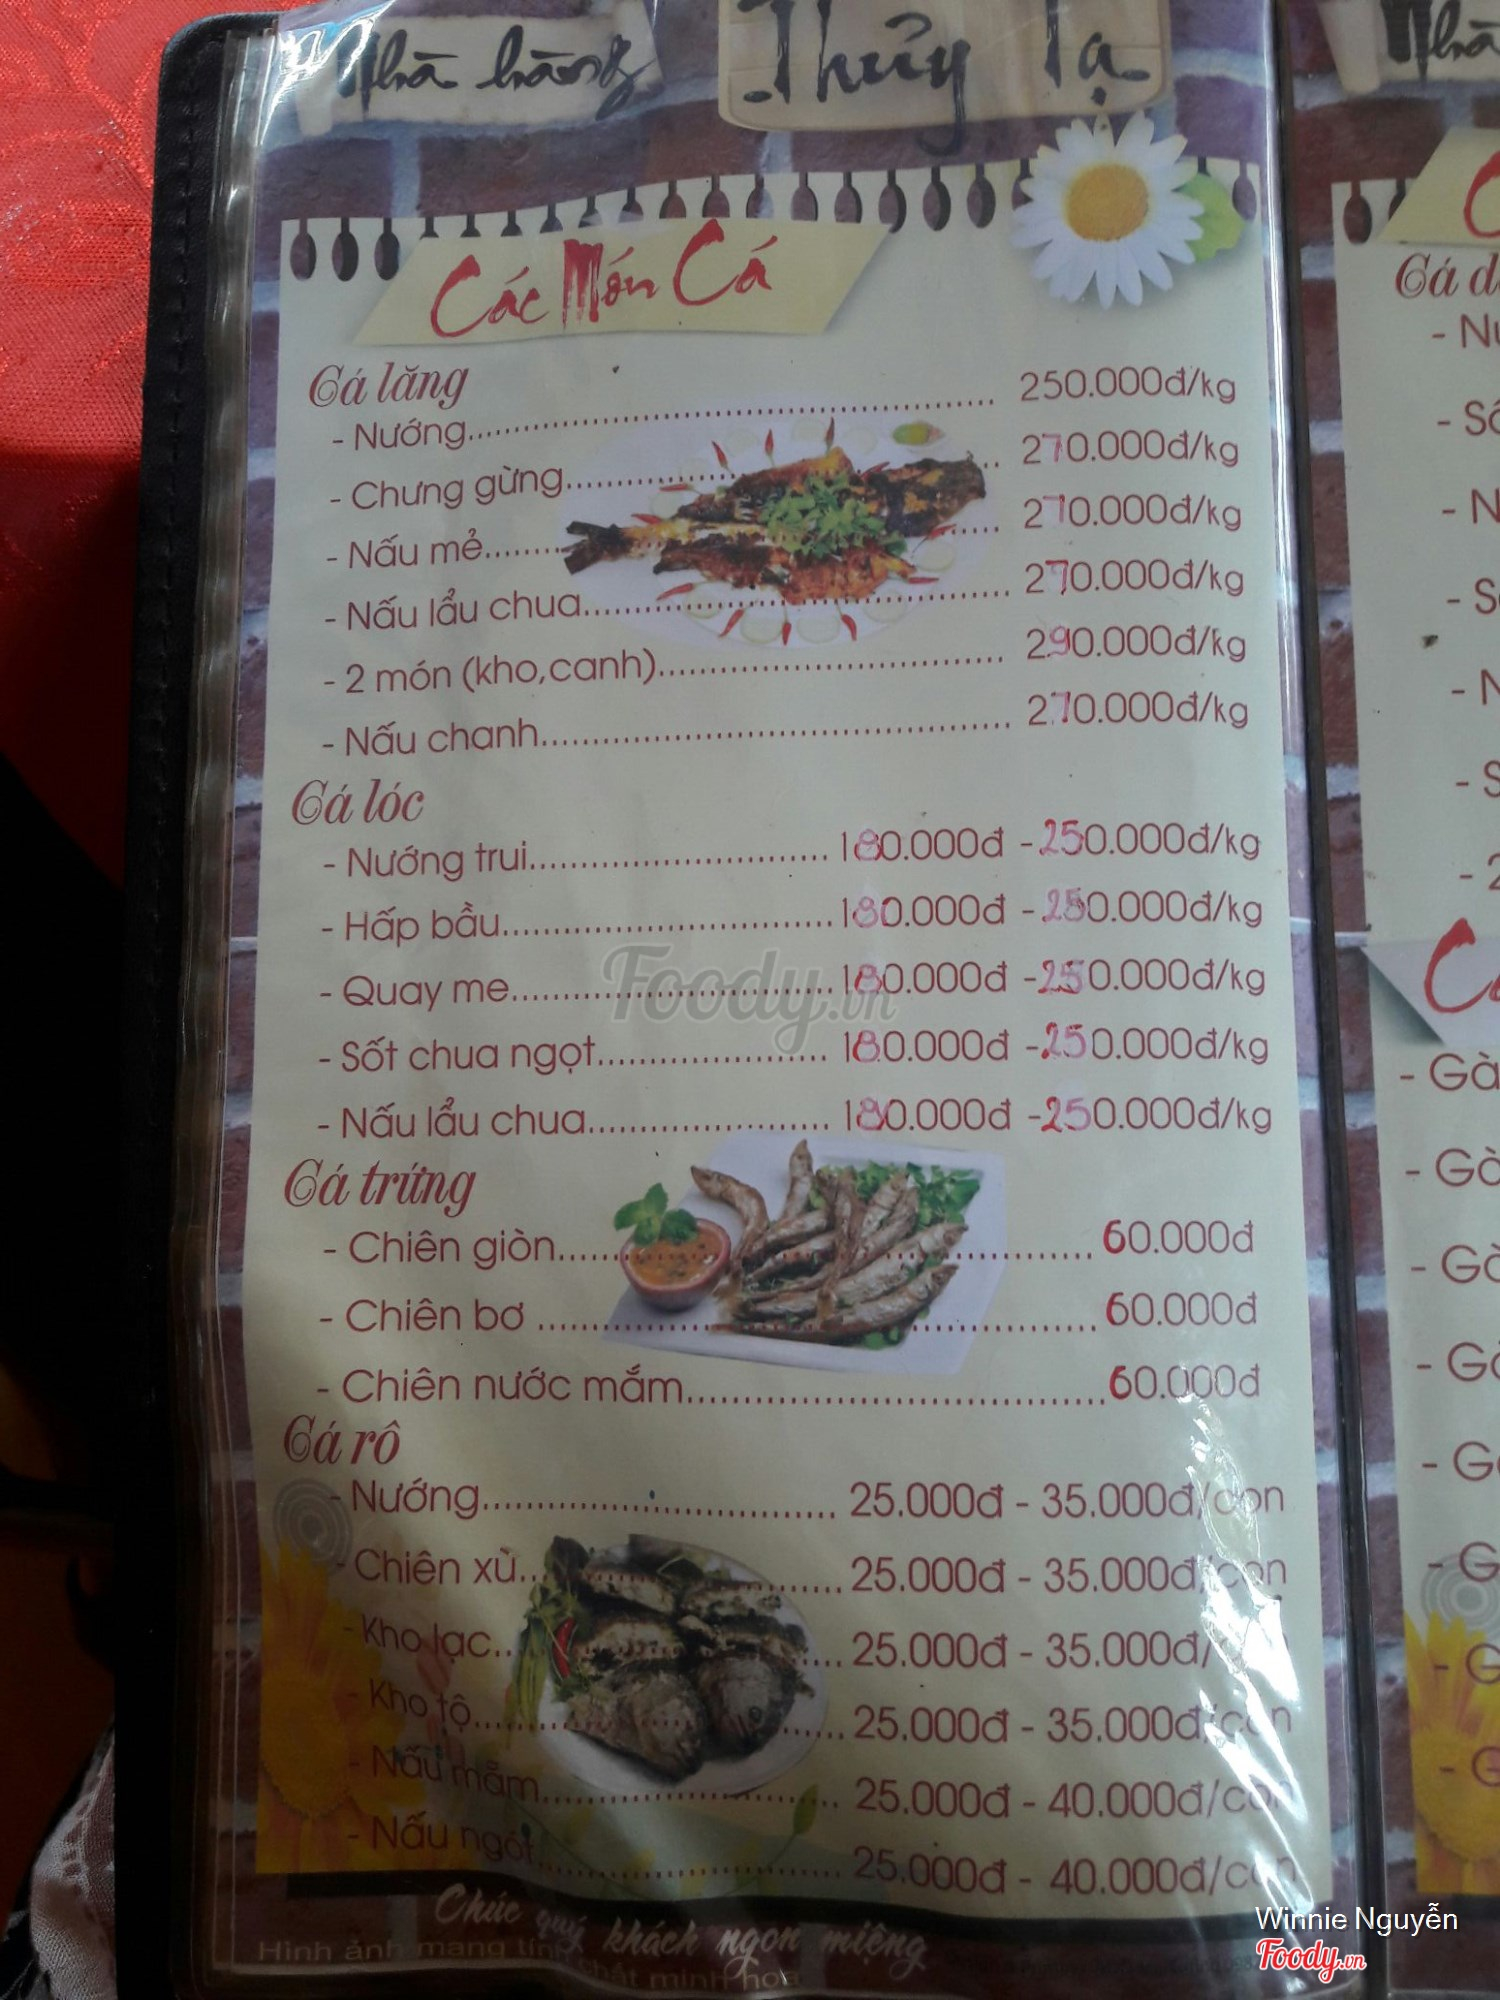 Nhà hàng Thủy Tạ
Các Món Cá
Cá lăng
- Nướng........ 250.000đ/kg
- Chưng gừng........ 270.000đ/kg
- Nấu mẻ........ 270.000đ/kg
- Nấu lẩu chua........ 270.000đ/kg
- 2 món (kho,canh)........ 290.000đ/kg
- Nấu chanh........ 270.000đ/kg
Cá lóc
- Nướng trui........ 180.000đ - 250.000đ/kg
- Hấp bầu........ 180.000đ - 250.000đ/kg
- Quay me........ 180.000đ - 250.000đ/kg
- Sốt chua ngọt........ 180.000đ - 250.000đ/kg
- Nấu lẩu chua........ 180.000đ - 250.000đ/kg
Cá trứng
- Chiên giòn........ 60.000đ
- Chiên bơ ........ 60.000đ
- Chiên nước mắm........ 60.000đ
Cá rô
- Nướng........ 25.000đ - 35.000đ/con
- Chiên xù........ 25.000đ - 35.000đ/con
- Kho lạc........ 25.000đ - 35.000đ/
- Kho tộ........ 25.000đ - 35.000đ/con
- Nấu mẵm........ 25.000đ - 40.000đ/con
- Nấu ngót........ 25.000đ - 40.000đ/con
Chúc quý khách ngon miệng
Hình ảnh mang tính chất minh họa
Foody.vn
Winnie Nguyễn
Foody.vn